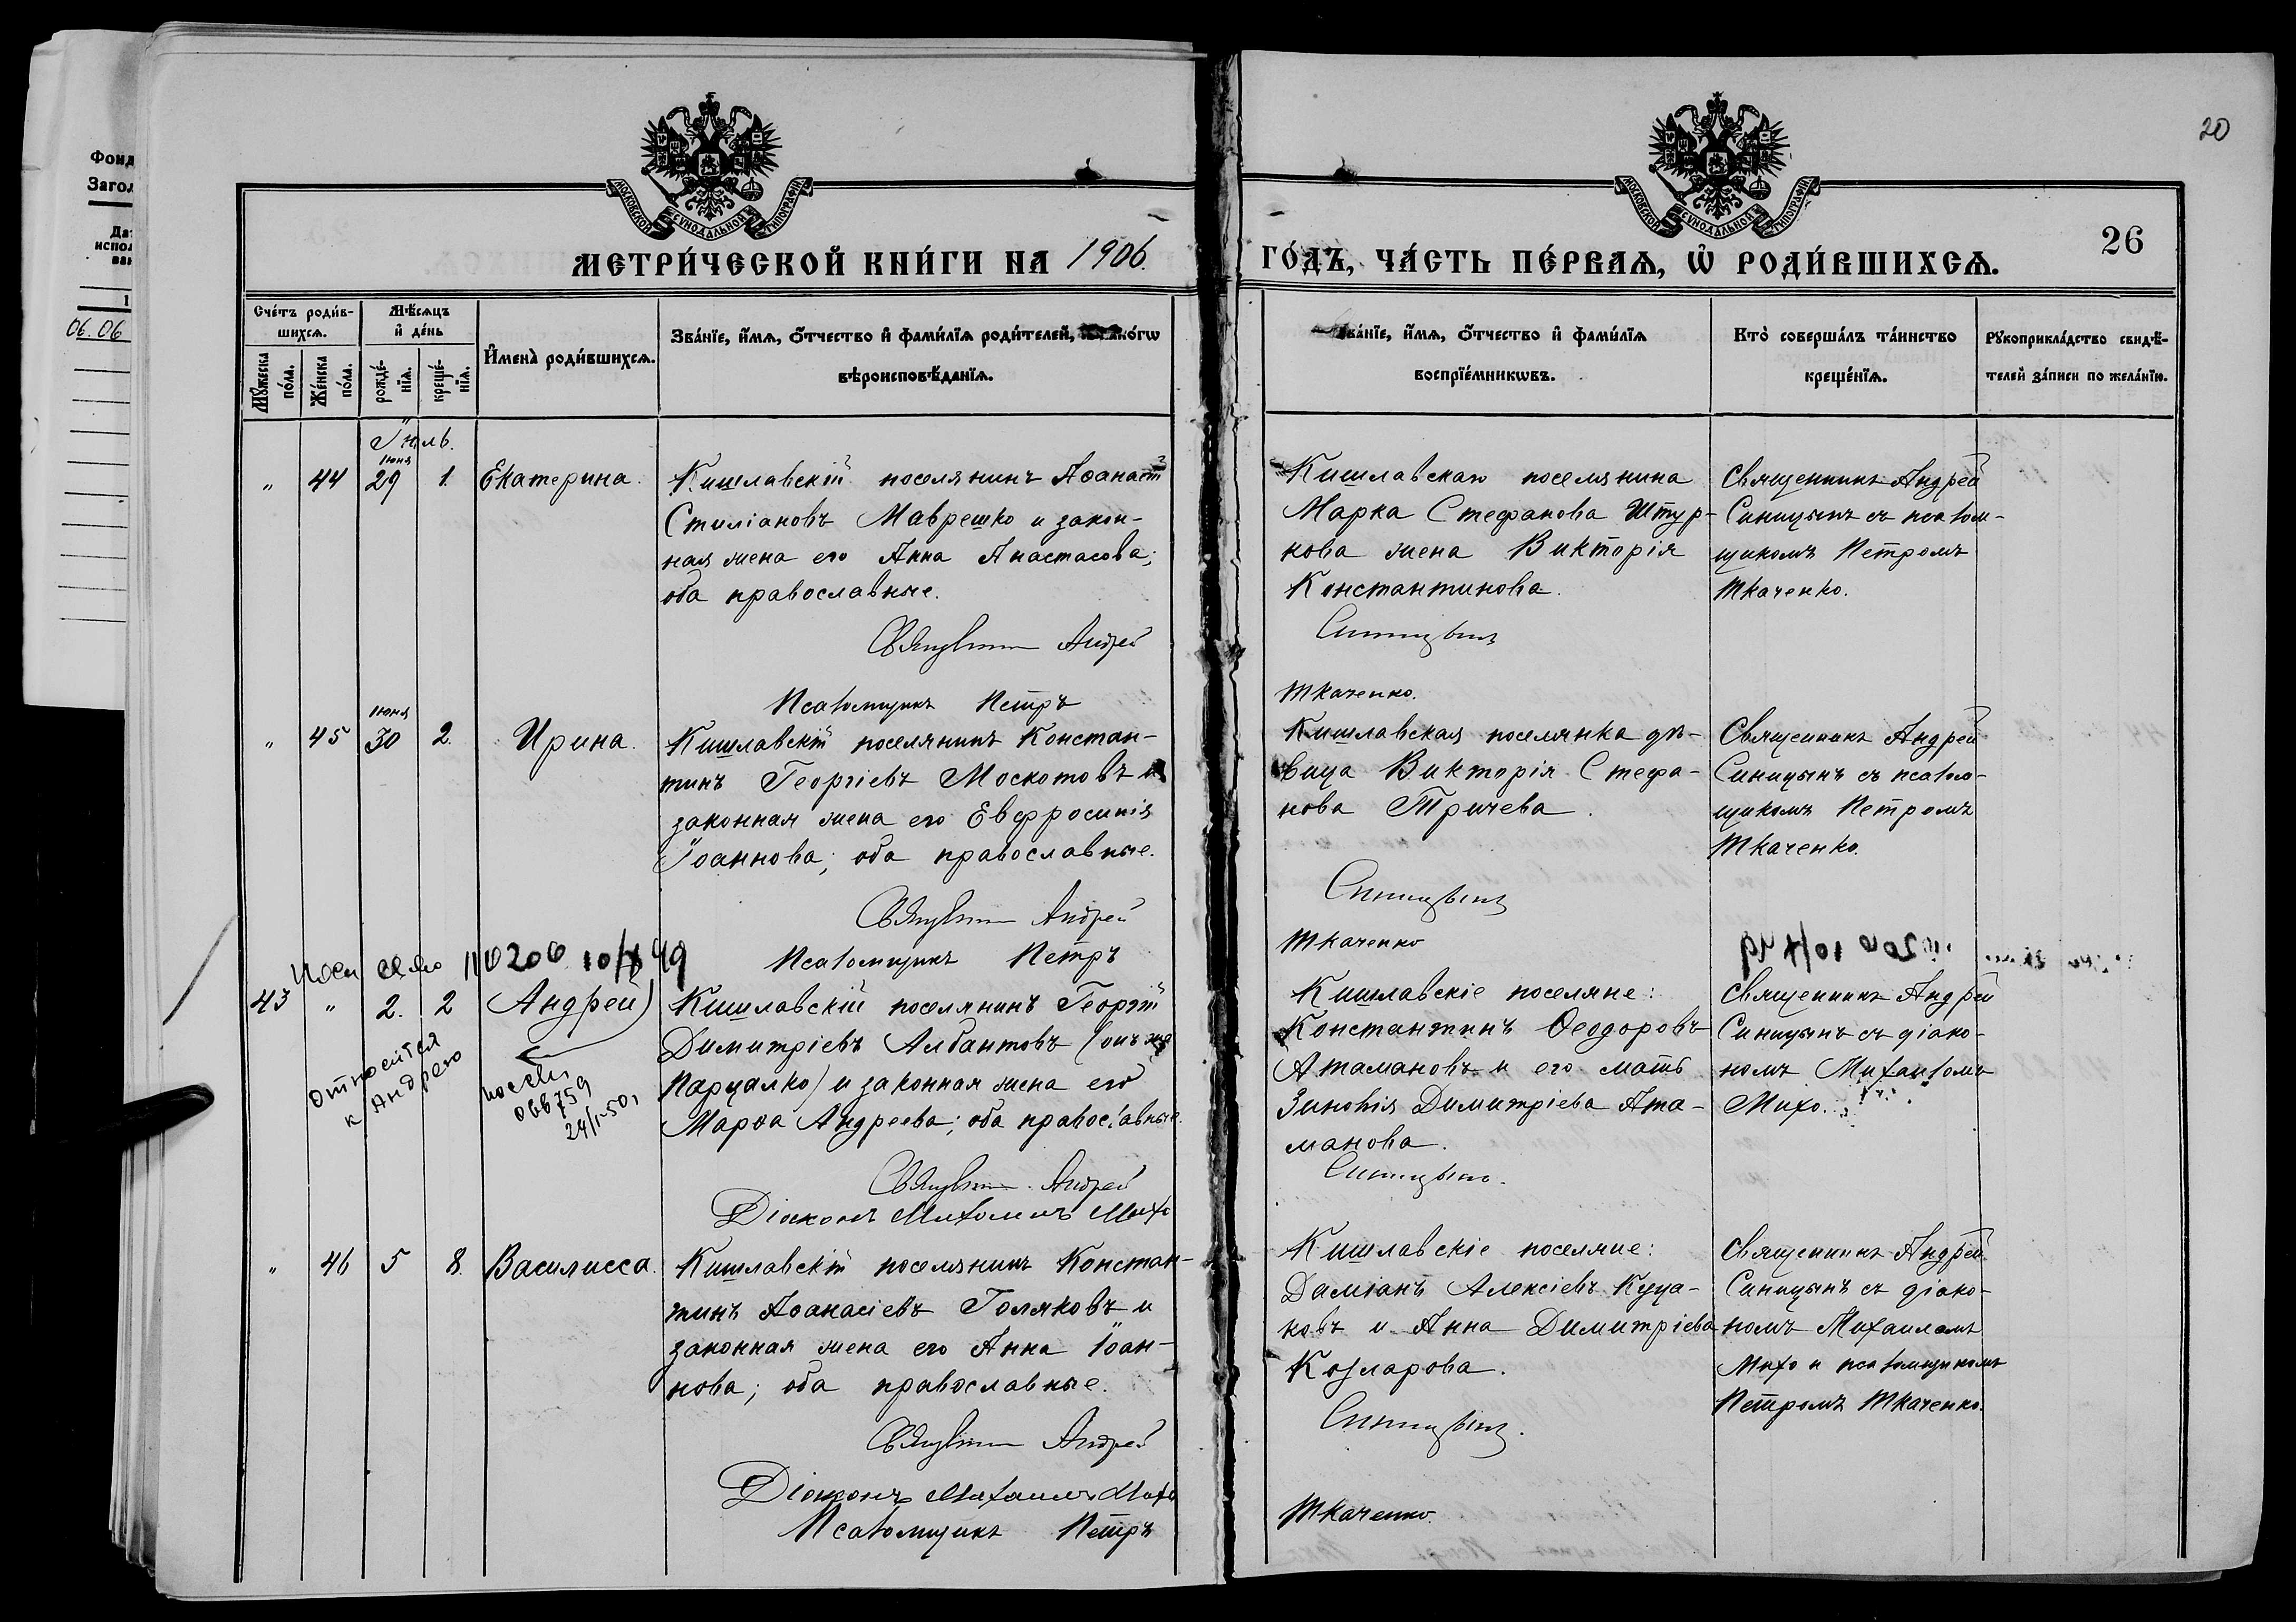 Фонд
Загол
Дат
испол
ван
1
06.06
20
26
МОСКОВСКОЙ СѴНОДАЛЬНОЙ ТИПОГРАФІИ
МОСКОВСКОЙ СѴНОДАЛЬНОЙ ТИПОГРАФІИ
МЕТРИ́ЧЕСКОЙ КНИ́ГИ НА 1906.
ГО́ДЪ, ЧА́СТЬ ПЕ́РВАѦ, Ѡ҆ РОДИ́ВШИХСѦ.
Сче́тъ роди́в-
шихсѧ.
Мꙋ́жеска
по́ла.
Же́нска
по́ла.
Мѣ́сѧцъ
и҆ де́нь
рожде́-
нїѧ.
креще́-
нїѧ.
И҆мена̀ роди́вшихсѧ.
Зва́нїе, и҆́мѧ, ѻ҆́тчество и҆ фами́лїѧ роди́телей,
вѣроисповѣ́данїѧ.
Зва́нїе, и҆́мѧ, ѻ҆́тчество и҆ фами́лїѧ
воспрїе́мникѡвъ.
Кто̀ соверша́лъ та́инство
креще́нїѧ.
Рꙋкоприкла́дство свидѣ́-
телей за́писи по жела́нїю.
Іюль.
Іюня
" 44 29 1. Екатерина.
Кишлавскій поселянинъ Аѳанасій
Стиліановъ Маврешко и закон-
ная жена его Анна Анастасова;
оба православные.
Священникъ Андрей
Псаломщикъ Петръ
Кишлавскаго поселянина
Марка Стефанова Штур-
кова жена Викторія
Константинова.
Синицынъ
Ткаченко.
Священникъ Андрей
Синицынъ съ псалом-
щикомъ Петромъ
Ткаченко.
Іюня
" 45 30 2. Ирина.
Кишлавскій поселянинъ Констан-
тинъ Георгіевъ Москотовъ и
законная жена его Евфросинія
Іоаннова; оба православные.
Священникъ Андрей
Псаломщикъ Петръ
Кишлавская поселянка дѣ-
вица Викторія Стефа-
нова Тричева.
Синицынъ
Ткаченко
Священникъ Андрей
Синицынъ съ псалом-
щикомъ Петромъ
Ткаченко.
43 " 2. 2 Андрей
Относится
к Андрею
066759
24/I-50,
Кишлавскій поселянинъ Георгій
Димитріевъ Албантовъ (онъ же
Парцалко) и законная жена его
Марѳа Андреева; оба православные.
Священникъ Андрей
Діаконъ Михаилъ Михо
Кишлавскіе поселяне:
Константинъ Ѳеодоровъ
Атамановъ и его мать
Зиновія Димитріева Ата-
манова.
Синицынъ.
Священникъ Андрей
Синицынъ съ діако-
номъ Михаиломъ
Михо.
" 46 5 8. Василисса.
Кишлавскій поселянинъ Констан-
тинъ Аѳанасіевъ Голяковъ и
законная жена его Анна Іоан-
нова; оба православные.
Священникъ Андрей
Діаконъ Михаилъ Михо
Псаломщикъ Петръ
Кишлавскіе поселяне:
Даміанъ Алексіевъ Куца-
ковъ и Анна Димитріева
Козларова.
Синицынъ.
Ткаченко.
Священникъ Андрей
Синицынъ съ діако-
номъ Михаиломъ
Михо и псаломщикомъ
Петромъ Ткаченко.